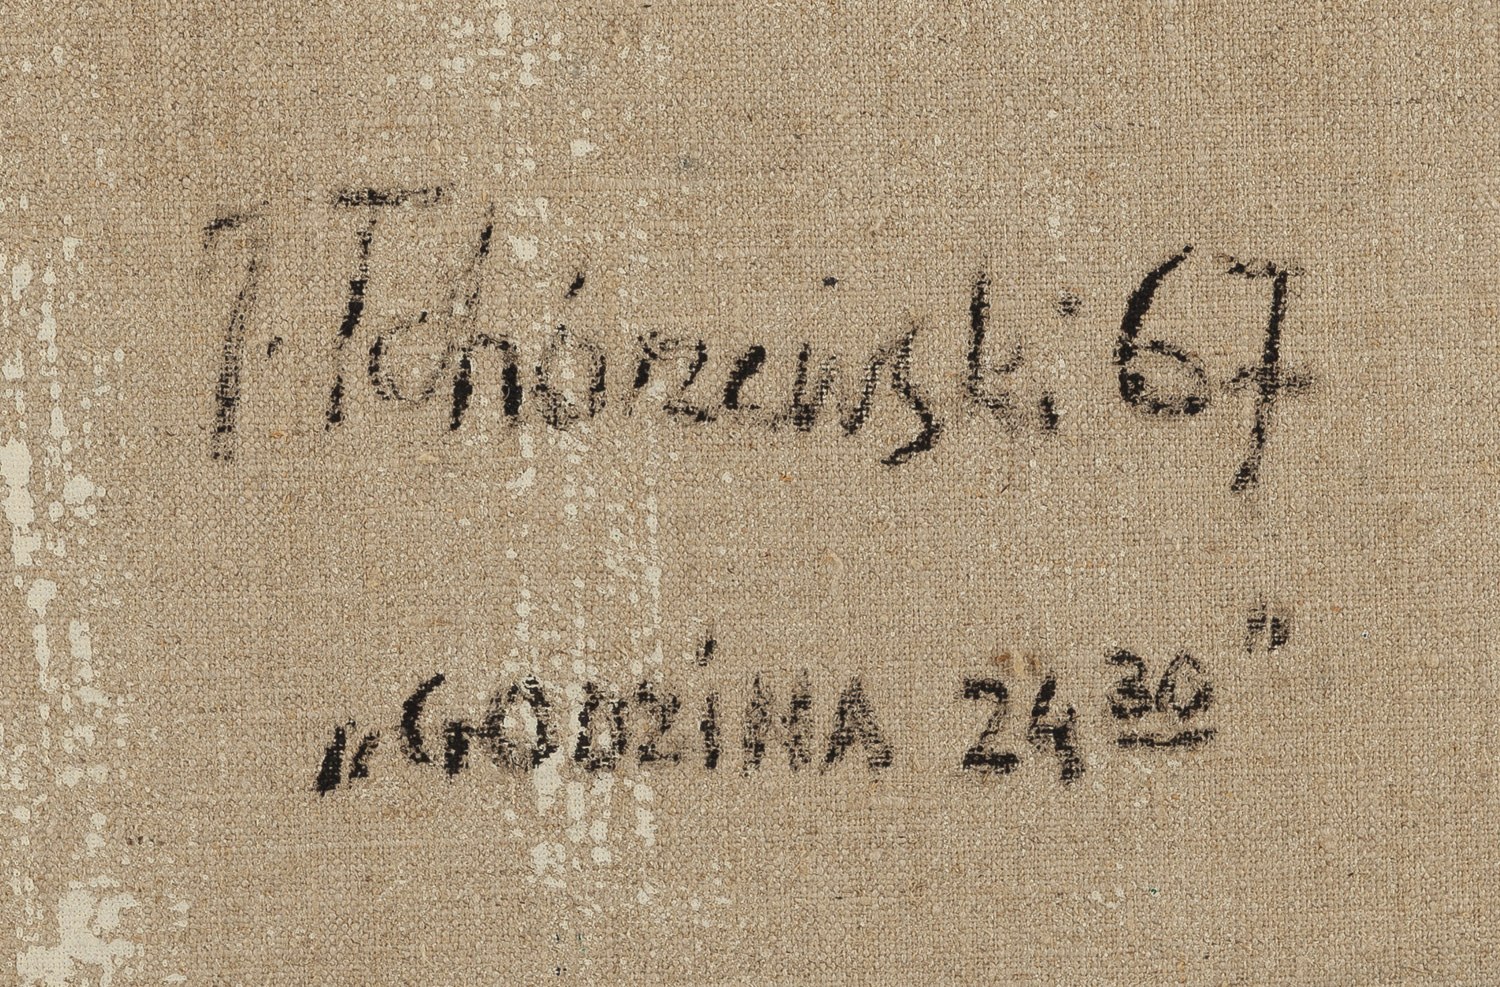 J. Tchórzewski 67
„GODZiNA 24 30"